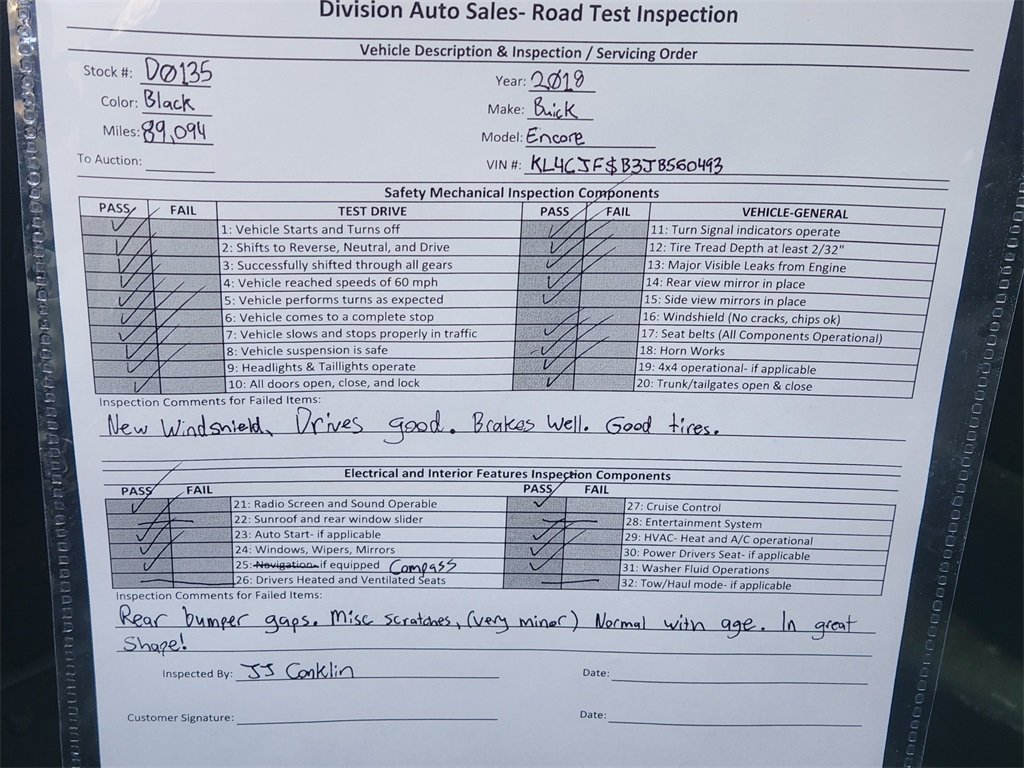 Division Auto Sales- Road Test Inspection
Vehicle Description & Inspection / Servicing Order
Stock #: D0135 Year: 2018
Color: Black Make: Buick
Miles: 89,094 Model: Encore
To Auction: VIN #: KL4CJF$B3JB560493
Safety Mechanical Inspection Components
PASS FAIL TEST DRIVE PASS FAIL VEHICLE-GENERAL
1: Vehicle Starts and Turns off 11: Turn Signal indicators operate
2: Shifts to Reverse, Neutral, and Drive 12: Tire Tread Depth at least 2/32"
3: Successfully shifted through all gears 13: Major Visible Leaks from Engine
4: Vehicle reached speeds of 60 mph 14: Rear view mirror in place
5: Vehicle performs turns as expected 15: Side view mirrors in place
6: Vehicle comes to a complete stop 16: Windshield (No cracks, chips ok)
7: Vehicle slows and stops properly in traffic 17: Seat belts (All Components Operational)
8: Vehicle suspension is safe 18: Horn Works
9: Headlights & Taillights operate 19: 4x4 operational- if applicable
10: All doors open, close, and lock 20: Trunk/tailgates open & close
Inspection Comments for Failed Items:
New Windshield, Drives good. Brakes well. Good tires.
Electrical and Interior Features Inspection Components
PASS FAIL PASS FAIL
21: Radio Screen and Sound Operable 27: Cruise Control
22: Sunroof and rear window slider 28: Entertainment System
23: Auto Start- if applicable 29: HVAC- Heat and A/C operational
24: Windows, Wipers, Mirrors 30: Power Drivers Seat- if applicable
25: Navigation- if equipped Compass 31: Washer Fluid Operations
26: Drivers Heated and Ventilated Seats 32: Tow/Haul mode- if applicable
Inspection Comments for Failed Items:
Rear bumper gaps. Misc scratches, (very minor) Normal with age. In great
Shape!
Inspected By: JJ Conklin Date:
Customer Signature: Date: